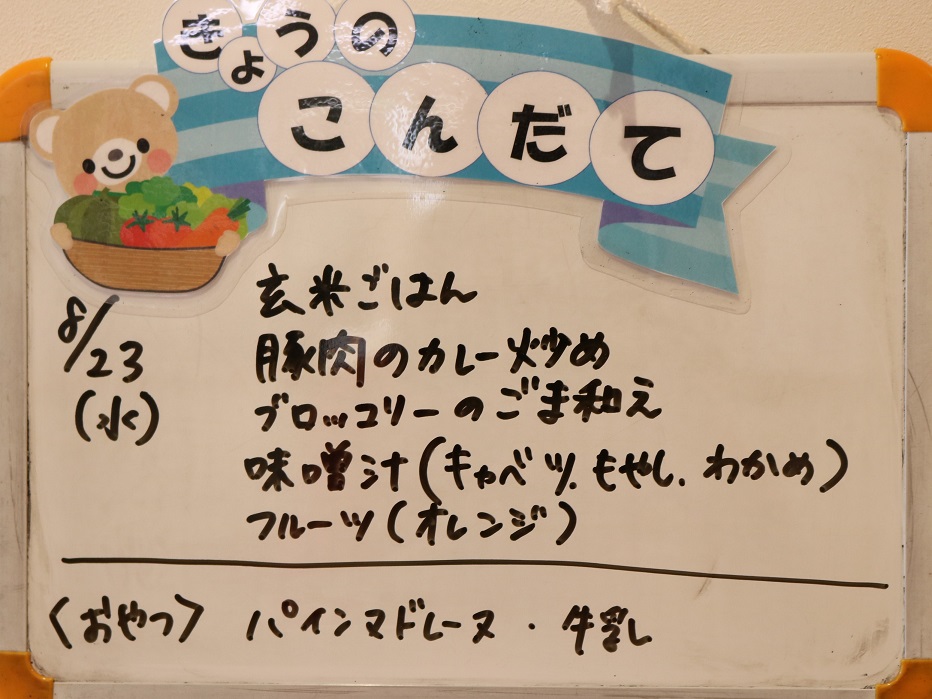 きょうの
こんだて
8/23
(水)
玄米ごはん
豚肉のカレー炒め
ブロッコリーのごま和え
味噌汁(キャベツ、もやし、わかめ)
フルーツ(オレンジ)
〈おやつ〉 パインマドレーヌ・牛乳